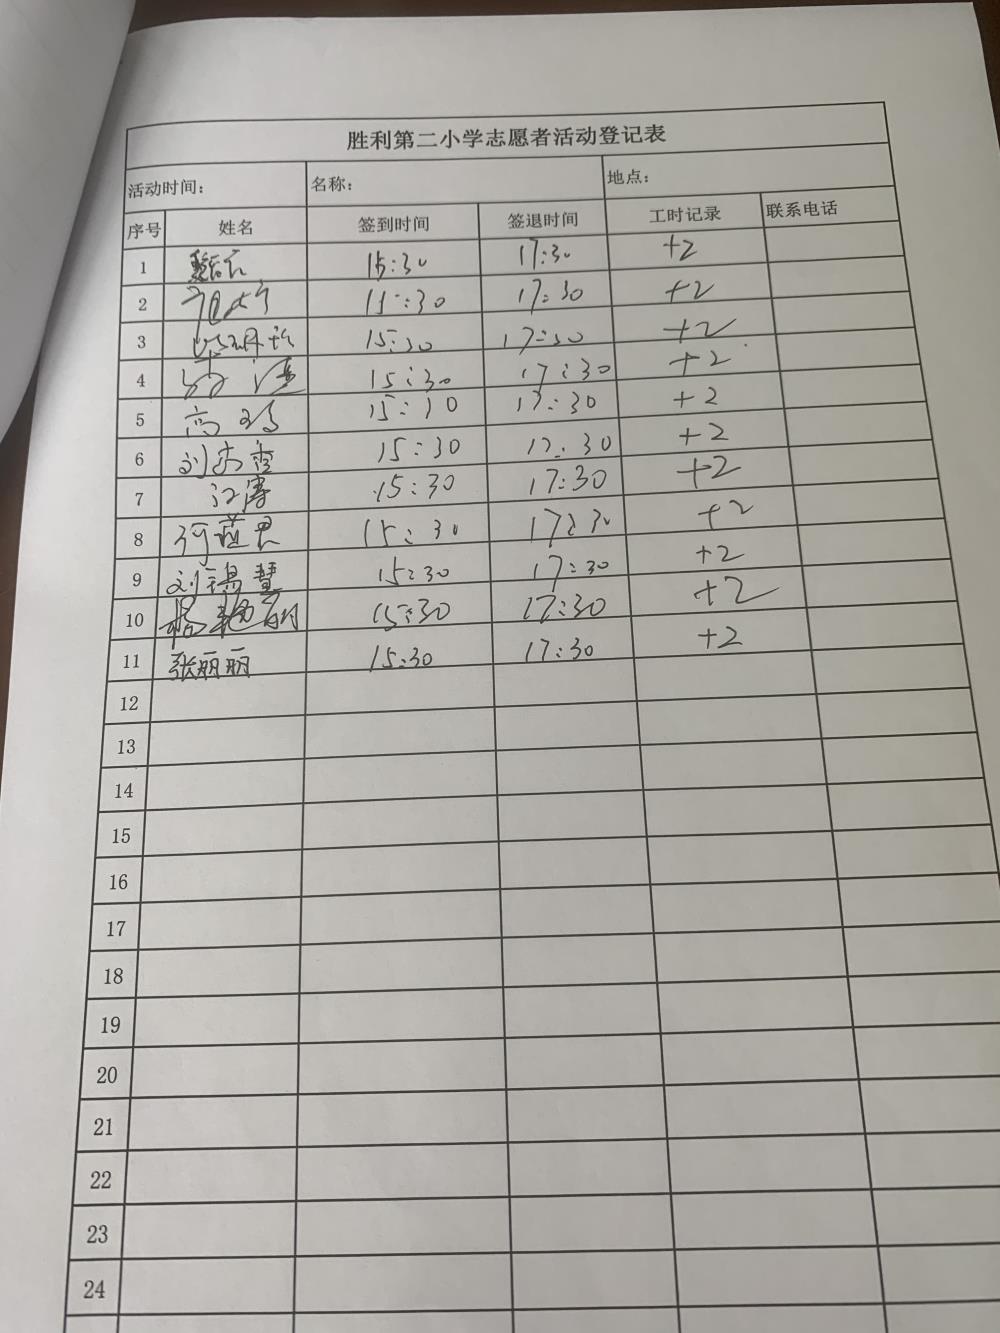 胜利第二小学志愿者活动登记表
活动时间: 名称: 地点:
序号 姓名 签到时间 签退时间 工时记录 联系电话
1 15:30 17:30 +2
2 15:30 17:30 +2
3 15:30 17:30 +2
4 15:30 17:30 +2
5 高 15:30 17:30 +2
6 刘志香 15:30 17:30 +2
7 江涛 15:30 17:30 +2
8 何燕君 15:30 17:30 +2
9 刘锡慧 15:30 17:30 +2
10 杨艳丽 15:30 17:30 +2
11 张丽丽 15:30 17:30 +2
12
13
14
15
16
17
18
19
20
21
22
23
24